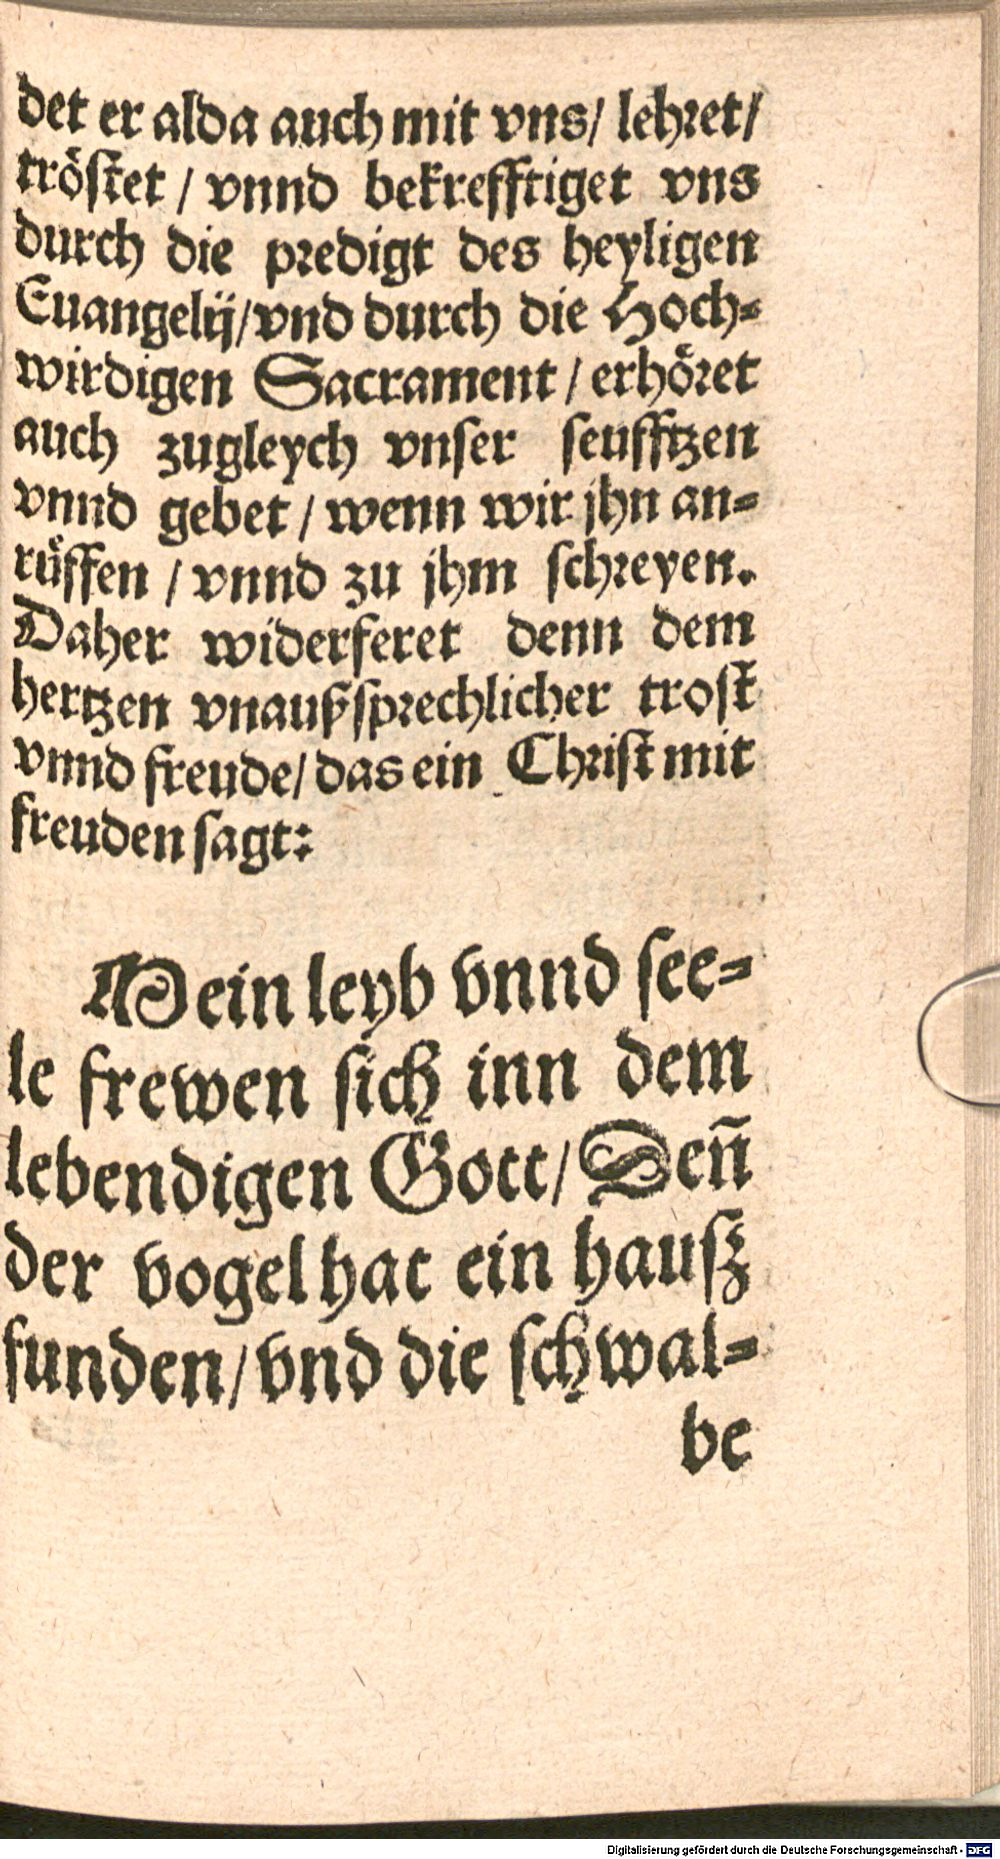 det er alda auch mit vns/ lehret/
tröstet / vnnd bekrefftiget vns
durch die predigt des heyligen
Euangelij/vnd durch die Hoch-
wirdigen Sacrament / erhöret
auch zugleych vnser seufftzen
vnnd gebet / wenn wir jhn an-
rüffen / vnnd zu jhm schreyen.
Daher widerferet denn dem
hertzen vnaußsprechlicher trost
vnnd freude/ das ein Christ mit
freuden sagt:
Mein leyb vnnd see-
le frewen sich inn dem
lebendigen Gott/ Deñ
der vogel hat ein hauß
funden/ vnd die schwal-
be
Digitalisierung gefördert durch die Deutsche Forschungsgemeinschaft - DFG